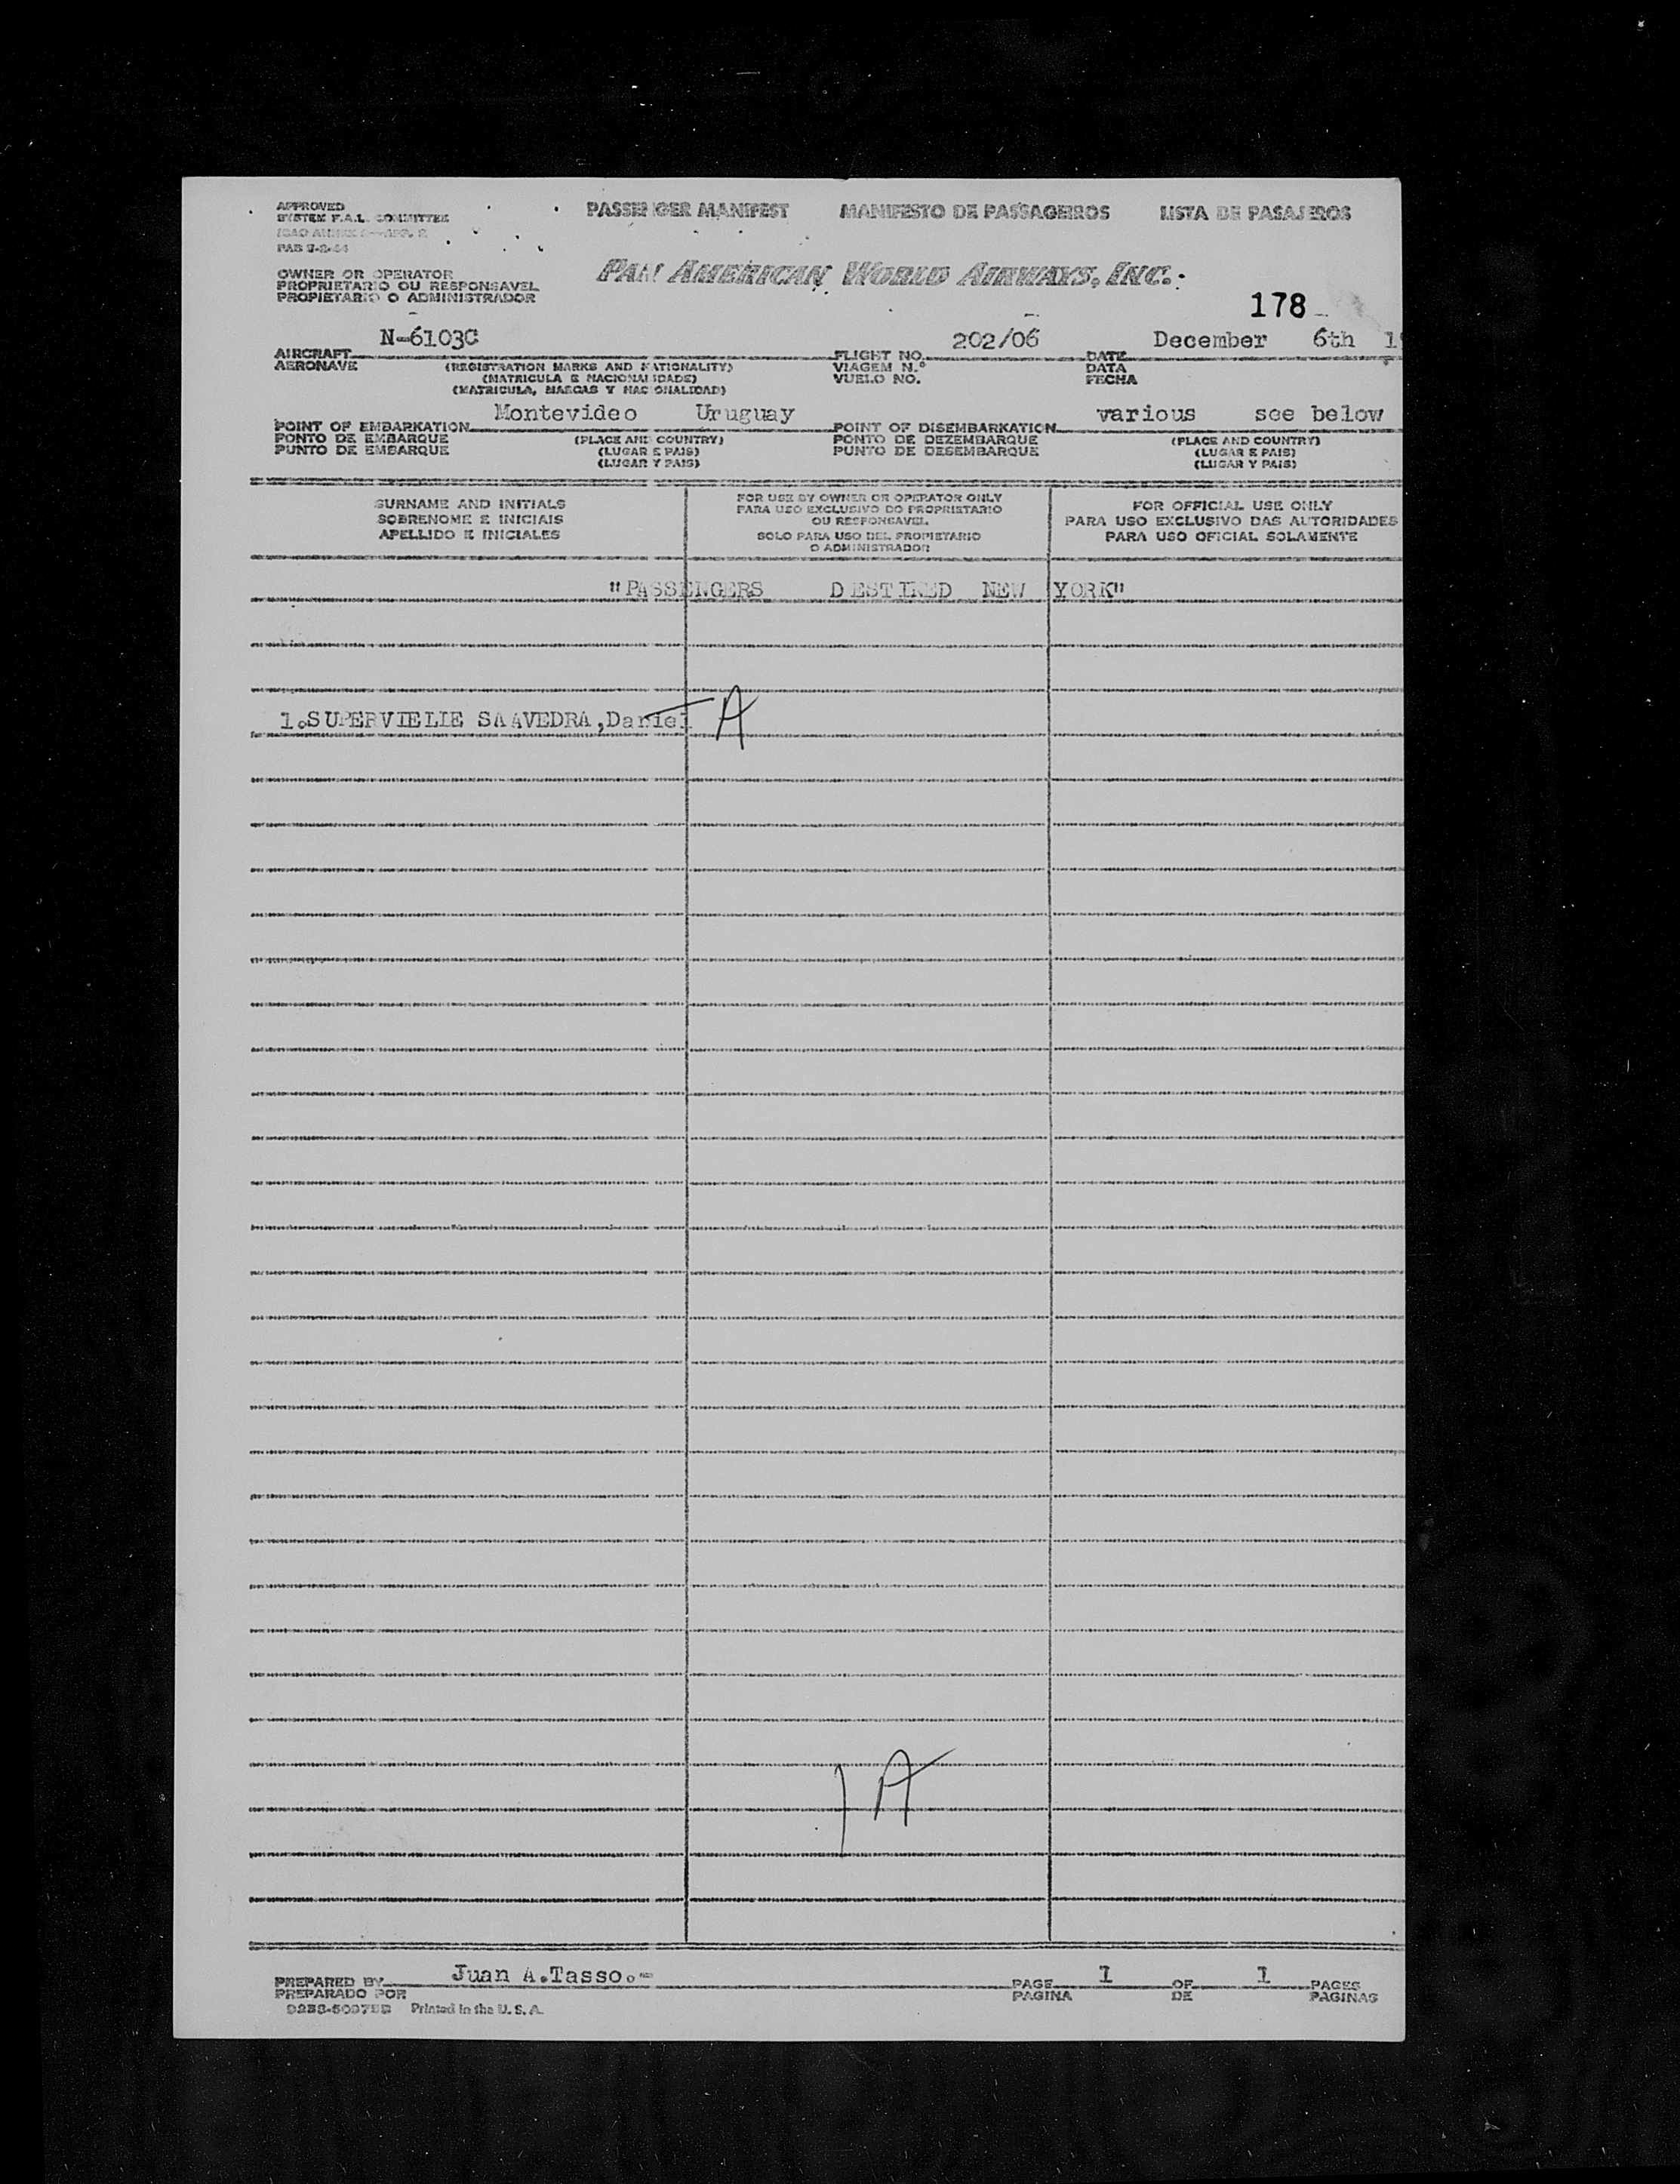 APPROVED
SYSTEM F.A.L. COMMITTEE
PASSENGER MANIFEST MANIFESTO DE PASSAGEIROS LISTA DE PASAJEROS
OWNER OR OPERATOR
PROPRIETARIO OU RESPONSAVEL
PROPIETARIO O ADMINISTRADOR
PAN AMERICAN WORLD AIRWAYS, INC.
178
N-6103C 202/06 December 6th 1
AIRCRAFT FLIGHT NO. DATE
AERONAVE (REGISTRATION MARKS AND NATIONALITY) VIAGEM N.° DATA
(MATRICULA E NACIONALIDADE) VUELO NO. FECHA
(MATRICULA, MARCAS Y NACIONALIDAD)
Montevideo Uruguay various see below
POINT OF EMBARKATION POINT OF DISEMBARKATION
PONTO DE EMBARQUE (PLACE AND COUNTRY) PONTO DE DEZEMBARQUE (PLACE AND COUNTRY)
PUNTO DE EMBARQUE (LUGAR E PAIS) PUNTO DE DESEMBARQUE (LUGAR E PAIS)
(LUGAR Y PAIS) (LUGAR Y PAIS)
SURNAME AND INITIALS
SOBRENOME E INICIAIS
APELLIDO E INICIALES
FOR USE BY OWNER OR OPERATOR ONLY
PARA USO EXCLUSIVO DO PROPRIETARIO
OU RESPONSAVEL
SOLO PARA USO DEL PROPIETARIO
O ADMINISTRADOR
FOR OFFICIAL USE ONLY
PARA USO EXCLUSIVO DAS AUTORIDADES
PARA USO OFICIAL SOLAMENTE
"PASSENGERS DESTINED NEW YORK"
1.SUPERVIELIE SAAVEDRA,Daniel A
1 A
PREPARED BY Juan A.Tasso.- PAGE 1 OF 1 PAGES
PREPARADO POR PAGINA DE PAGINAS
Printed in the U. S. A.